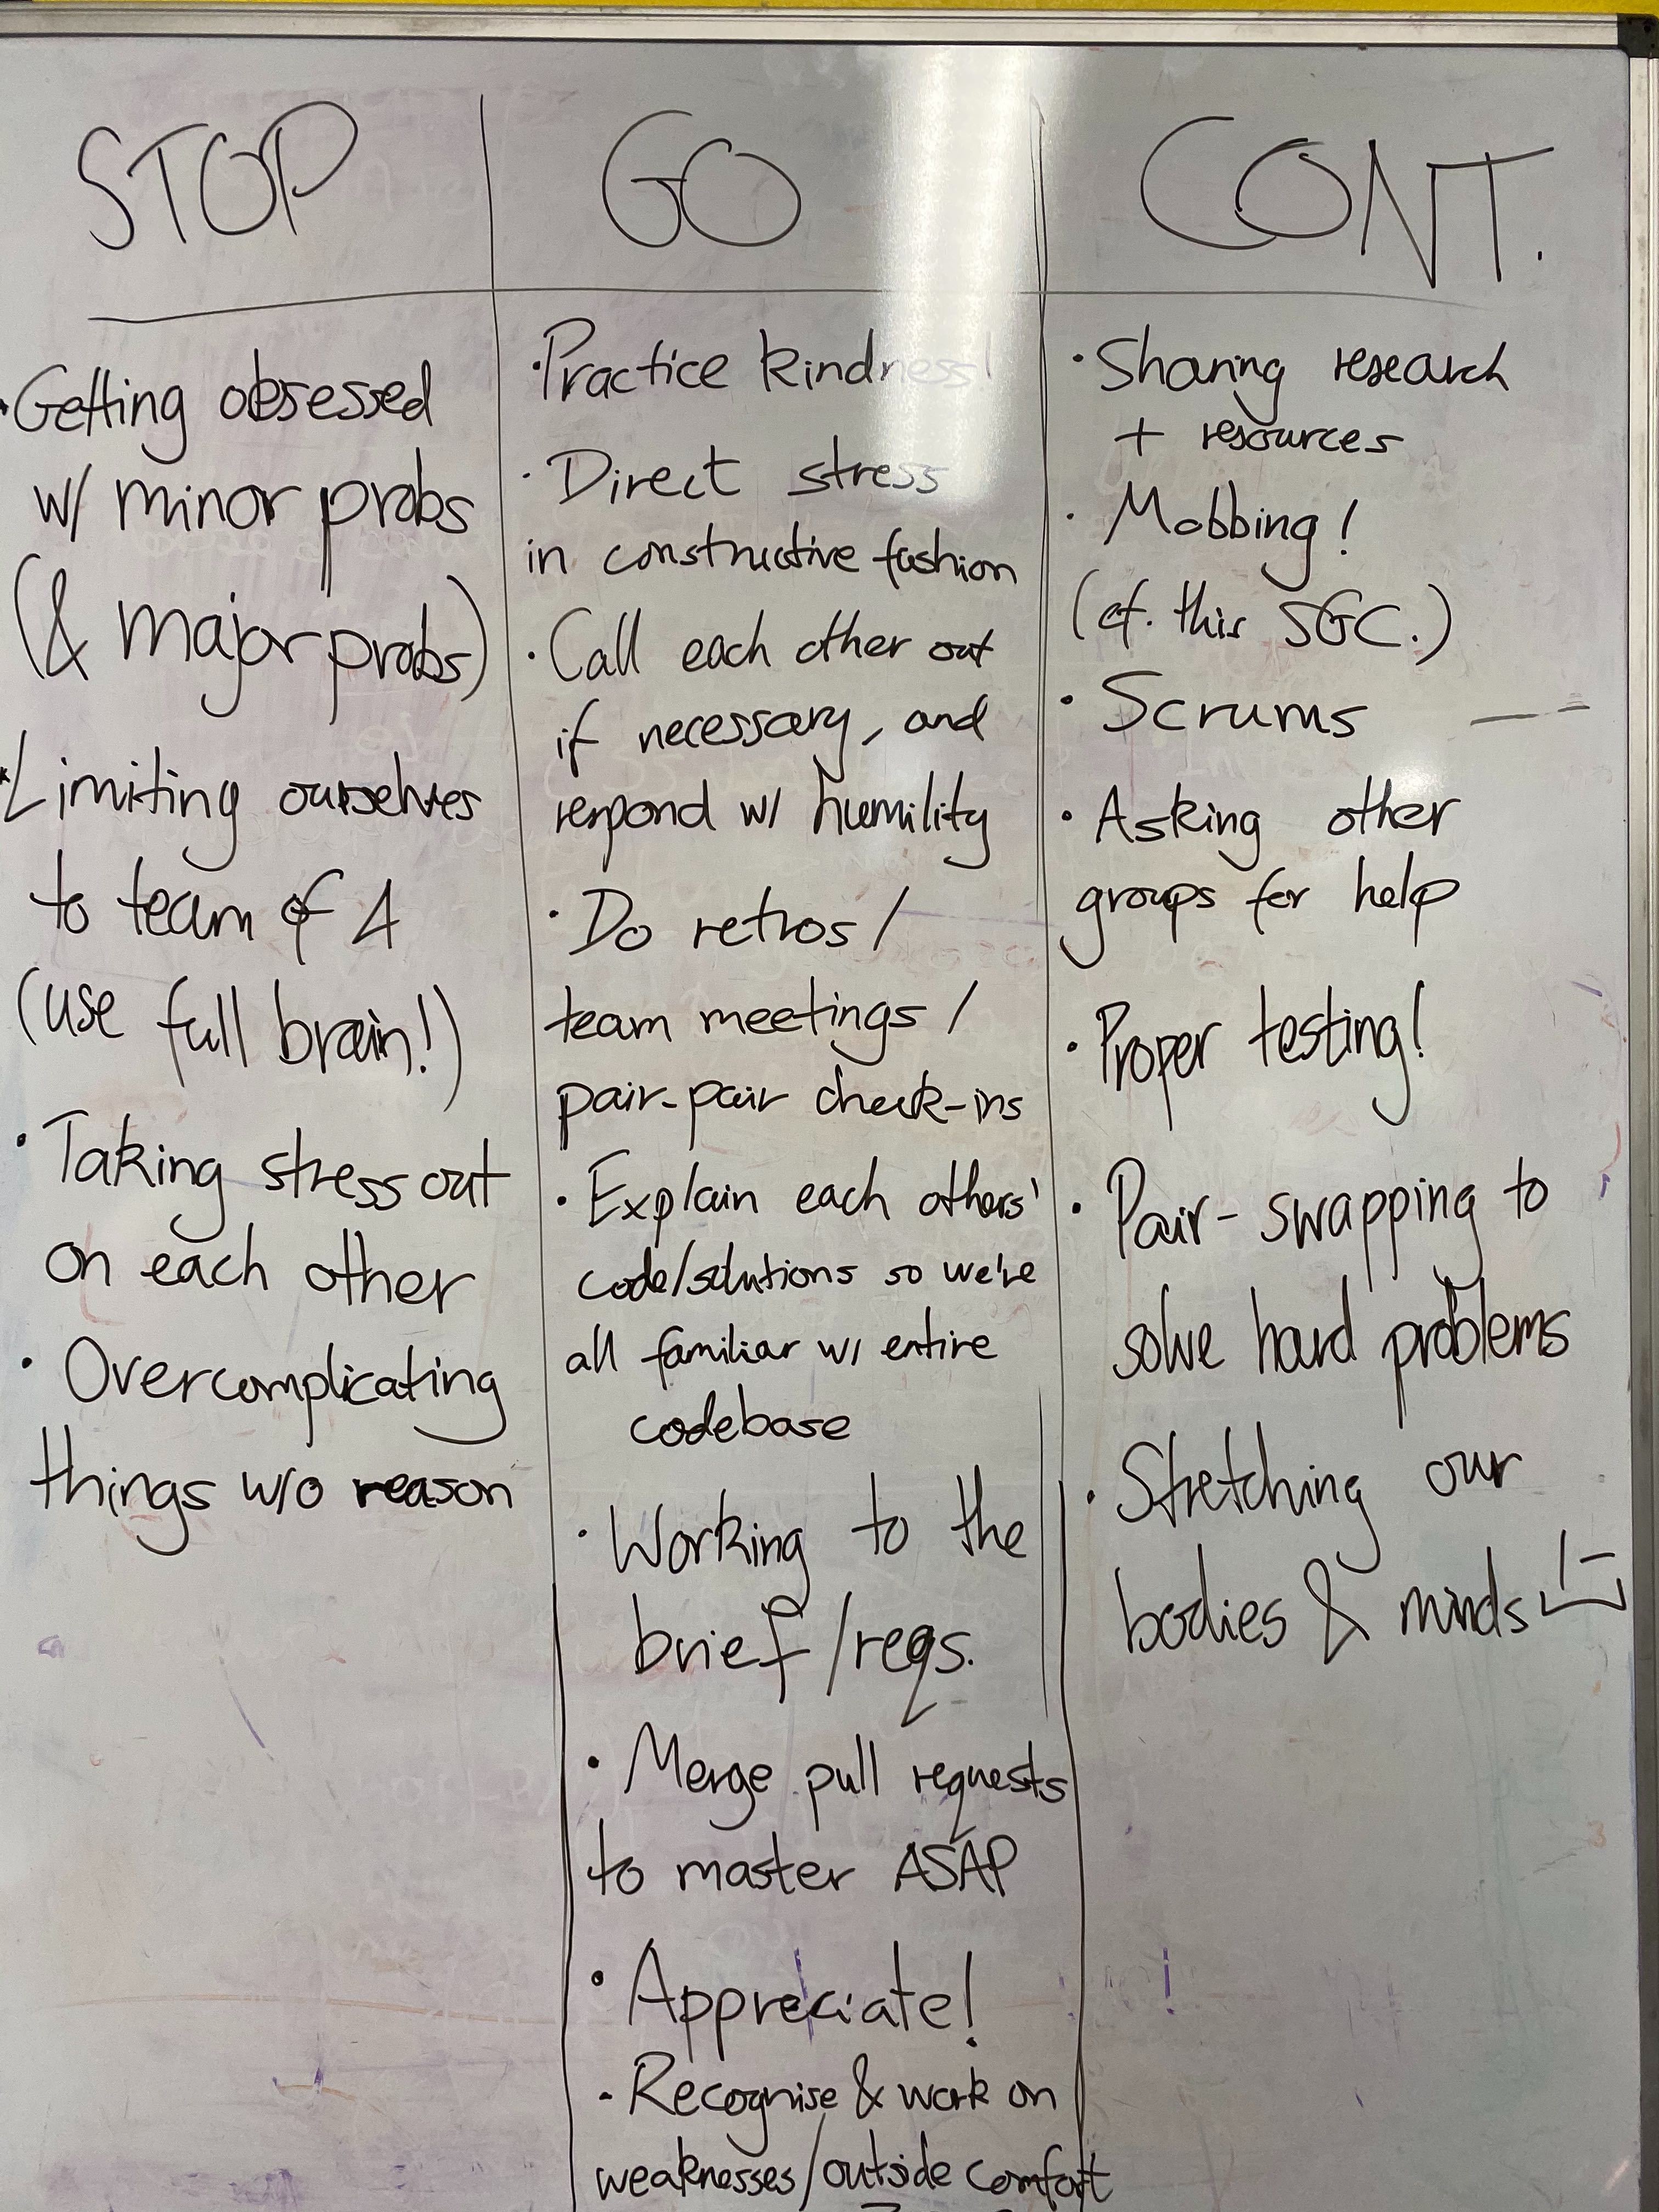 STOP
·Getting obsessed
w/ minor probs
(& major probs)
·Limiting ourselves
to team of 4
(use full brain!)
·Taking stress out
on each other
·Overcomplicating
things w/o reason
GO
·Practice kindness!
·Direct stress
in constructive fashion
·Call each other out
if necessary, and
respond w/ humility
·Do retros /
team meetings /
pair-pair check-ins
·Explain each others'
code/solutions so we're
all familiar w/ entire
codebase
·Working to the
brief/reqs.
·Merge pull requests
to master ASAP
·Appreciate!
·Recognise & work on
weaknesses/outside comfort
CONT.
·Sharing research
+ resources
·Mobbing!
(cf. this SGC.)
·Scrums
·Asking other
groups for help
·Proper testing!
·Pair-swapping to
solve hard problems
·Stretching our
bodies & minds